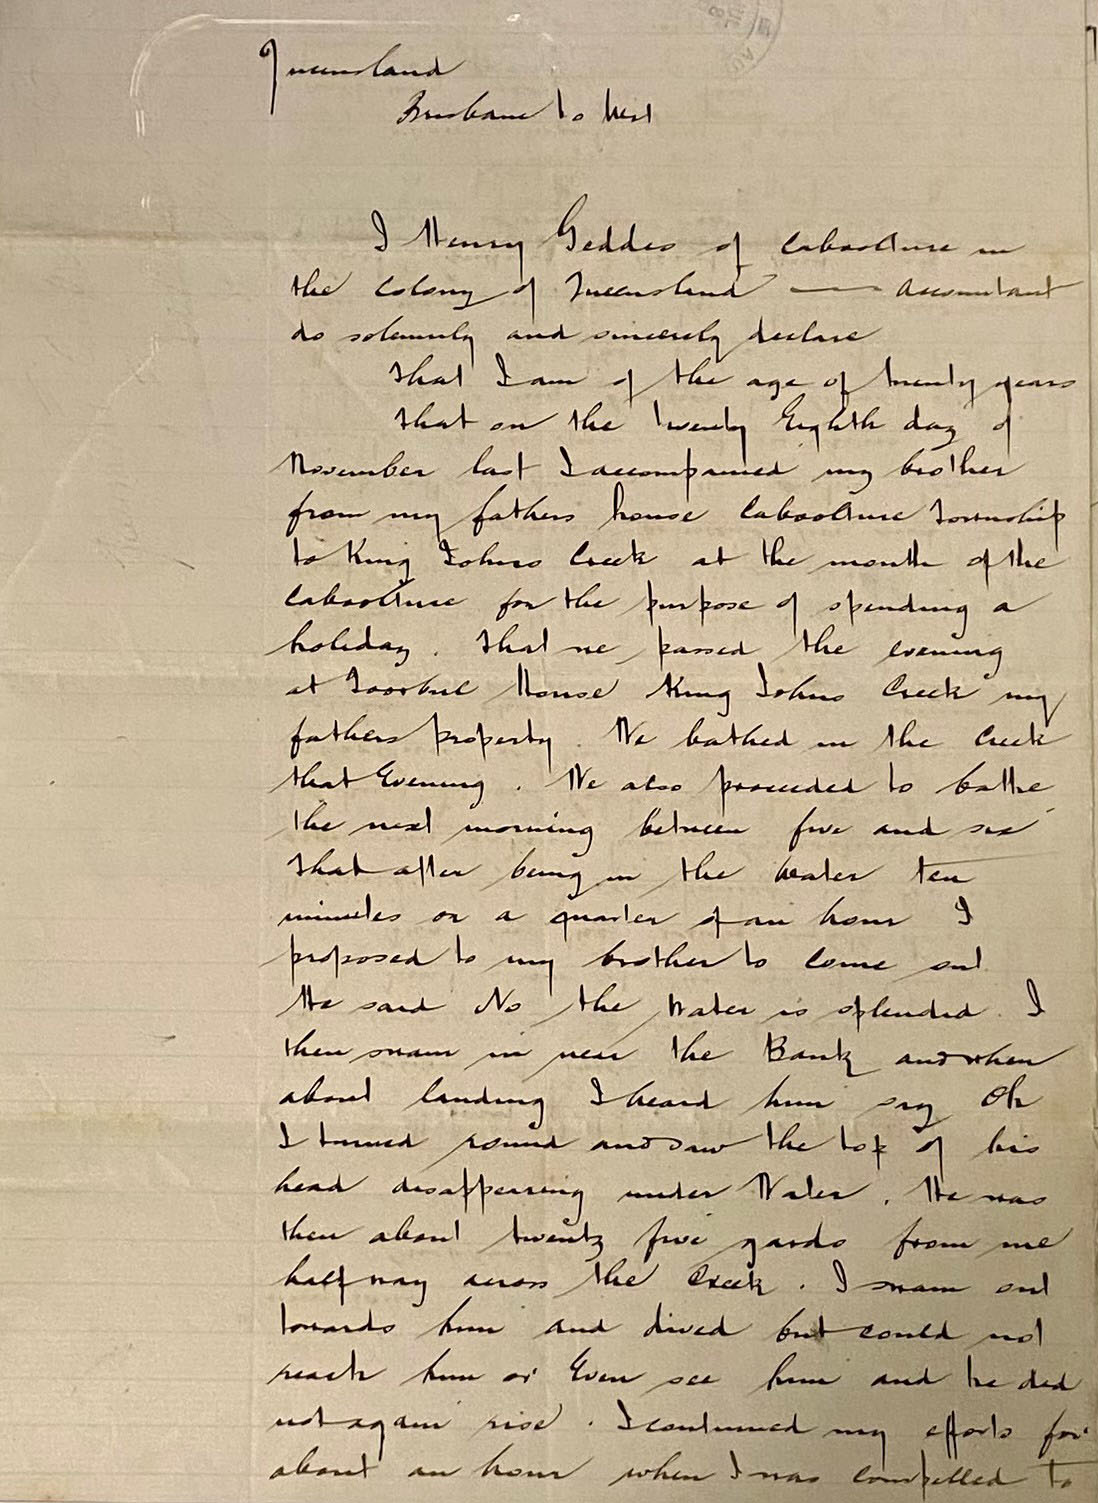 Queensland
Brisbane to Wit
I Henry Geddes of Caboolture in
the Colony of Queensland — Accountant
do solemnly and sincerely declare
That I am of the age of twenty years
That on the twenty Eighth day of
November last I accompanied my brother
from my fathers house Caboolture Township
to King Johns Creek at the mouth of the
Caboolture for the purpose of spending a
holiday. That we passed the evening
at Toorbul House King Johns Creek my
fathers property. We bathed in the Creek
that Evening. We also proceeded to bathe
the next morning between five and six
That after being in the Water ten
minutes or a quarter of an hour I
proposed to my brother to come out
He said No the Water is splendid. I
then swam in near the Bank and when
about landing I heard him say Oh
I turned round and saw the top of his
head disappearing under Water. He was
then about twenty five yards from me
half way across the Creek. I swam out
towards him and dived but could not
reach him or Even see him and he did
not again rise. I continued my efforts for
about an hour when I was compelled to